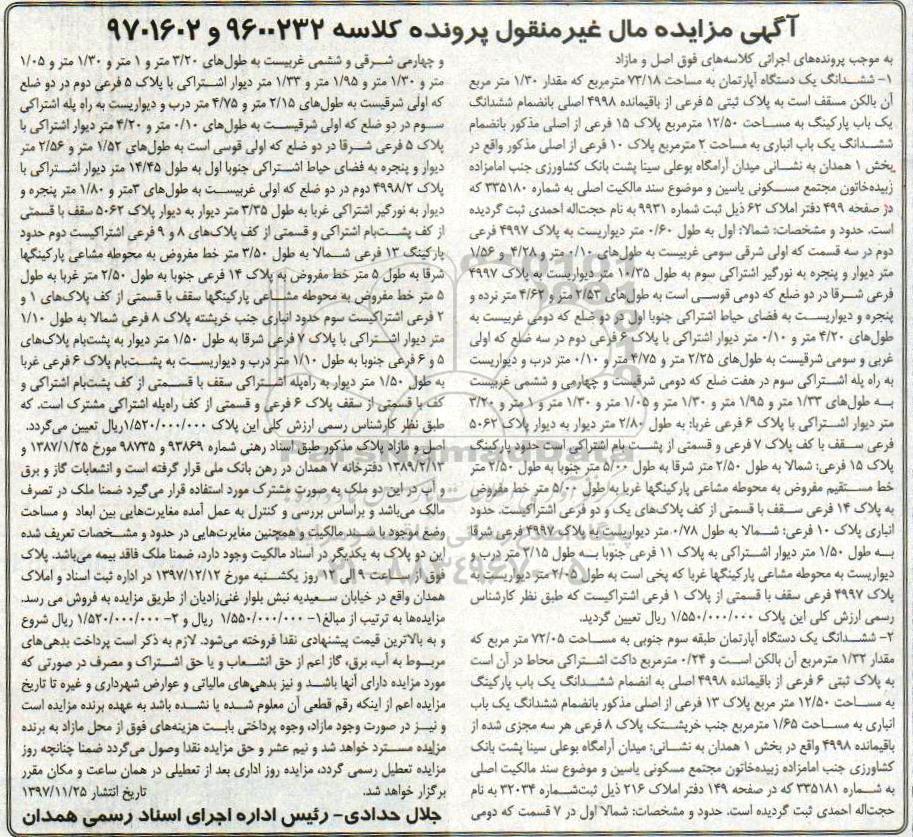 آگهی مزایده مال غیرمنقول پرونده کلاسه ۹۶۰۰۲۳۲ و ۹۷۰۱۶۰۲
به موجب پرونده‌های اجرائی کلاسه‌های فوق اصل و مازاد
۱- ششدانگ یک دستگاه آپارتمان به مساحت ۷۳/۱۸ مترمربع که مقدار ۱/۳۰ متر مربع
آن بالکن مسقف است به پلاک ثبتی ۵ فرعی از باقیمانده ۴۹۹۸ اصلی بانضمام ششدانگ
یک باب پارکینگ به مساحت ۱۲/۵۰ مترمربع پلاک ۱۵ فرعی از اصلی مذکور بانضمام
ششدانگ یک باب انباری به مساحت ۲ مترمربع پلاک ۱۰ فرعی از اصلی مذکور واقع در
بخش ۱ همدان به نشانی میدان آرامگاه بوعلی سینا پشت بانک کشاورزی جنب امامزاده
زبیده‌خاتون مجتمع مسکونی یاسین و موضوع سند مالکیت اصلی به شماره ۳۳۵۱۸۰ که
در صفحه ۴۹۹ دفتر املاک ۶۲ ذیل ثبت شماره ۹۹۳۱ به نام حجت‌اله احمدی ثبت گردیده
است. حدود و مشخصات: شمالا: اول به طول ۰/۶۰ متر دیواریست به پلاک ۴۹۹۷ فرعی
دوم در سه قسمت که اولی شرقی سومی غربیست به طول‌های ۰/۱۰ متر و ۴/۲۸ و ۱/۵۶
متر دیوار و پنجره به نورگیر اشتراکی سوم به طول ۱۰/۳۵ متر دیواریست به پلاک ۴۹۹۷
فرعی شرقا در دو ضلع که دومی قوسی است به طول‌های ۲/۵۳ متر و ۴/۶۲ متر نرده و
پنجره و دیواریست به فضای حیاط اشتراکی جنوبا اول در دو ضلع که دومی غربیست به
طول‌های ۴/۲۰ متر و ۰/۱۰ متر دیوار اشتراکی با پلاک ۶ فرعی دوم در سه ضلع که اولی
غربی و سومی شرقیست به طول‌های ۲/۲۵ متر و ۴/۷۵ متر و ۰/۱۰ متر درب و دیواریست
به راه پله اشتراکی سوم در هفت ضلع که دومی شرقیست و چهارمی و ششمی غربیست
به طول‌های ۱/۳۳ متر و ۱/۹۵ متر و ۱/۳۰ متر و ۱/۰۵ متر و ۱/۳۰ متر و ۱ متر و ۳/۲۰
متر دیوار اشتراکی با پلاک ۶ فرعی غربا: به طول ۲/۸۰ متر دیوار به دیوار پلاک ۵۰۶۲
فرعی سقف با کف پلاک ۷ فرعی و قسمتی از پشت بام اشتراکی است حدود پارکینگ
پلاک ۱۵ فرعی: شمالا به طول ۲/۵۰ متر شرقا به طول ۵/۰۰ متر جنوبا به طول ۲/۵۰ متر
خط مستقیم مفروض به محوطه مشاعی پارکینگها غربا به طول ۵/۰۰ متر خط مفروض
به پلاک ۱۴ فرعی سقف با قسمتی از کف پلاک‌های یک و دو فرعی اشتراکیست. حدود
انباری پلاک ۱۰ فرعی: شمالا به طول ۰/۷۸ متر دیواریست به پلاک ۴۹۹۷ فرعی شرقا
به طول ۱/۵۰ متر دیوار اشتراکی به پلاک ۱۱ فرعی جنوبا به طول ۲/۱۵ متر درب و
دیواریست به محوطه مشاعی پارکینگها غربا که پخی است به طول ۲/۰۵ متر دیواریست به
پلاک ۴۹۹۷ فرعی سقف با قسمتی از پلاک ۱ فرعی اشتراکیست که طبق نظر کارشناس
رسمی ارزش کلی این پلاک ۱/۵۵۰/۰۰۰/۰۰۰ ریال تعیین گردید.
۲- ششدانگ یک دستگاه آپارتمان طبقه سوم جنوبی به مساحت ۷۲/۰۵ متر مربع که
مقدار ۱/۳۲ مترمربع آن بالکن است و ۰/۲۴ مترمربع داکت اشتراکی محاط در آن است
به پلاک ثبتی ۶ فرعی از باقیمانده ۴۹۹۸ اصلی به انضمام ششدانگ یک باب پارکینگ
به مساحت ۱۲/۵۰ متر مربع پلاک ۱۳ فرعی از اصلی مذکور بانضمام ششدانگ یک باب
انباری به مساحت ۱/۶۵ مترمربع جنب خرپشتک پلاک ۸ فرعی هر سه مجزی شده از
باقیمانده ۴۹۹۸ واقع در بخش ۱ همدان به نشانی: میدان آرامگاه بوعلی سینا پشت بانک
کشاورزی جنب امامزاده زبیده‌خاتون مجتمع مسکونی یاسین و موضوع سند مالکیت اصلی
به شماره ۳۳۵۱۸۱ که در صفحه ۱۴۹ دفتر املاک ۲۱۶ ذیل ثبت‌شماره ۳۲۰۳۴ به نام
حجت‌اله احمدی ثبت گردیده است. حدود و مشخصات: شمالا اول در ۷ قسمت که دومی
و چهارمی شرقی و ششمی غربیست به طول‌های ۳/۲۰ متر و ۱ متر و ۱/۳۰ متر و ۱/۰۵
متر و ۱/۳۰ متر و ۱/۹۵ متر و ۱/۳۳ متر دیوار اشتراکی با پلاک ۵ فرعی دوم در دو ضلع
که اولی شرقیست به طول‌های ۲/۱۵ متر و ۴/۷۵ متر درب و دیواریست به راه پله اشتراکی
سوم در دو ضلع که اولی شرقیست به طول‌های ۰/۱۰ متر و ۴/۲۰ متر دیوار اشتراکی با
پلاک ۵ فرعی شرقا در دو ضلع که اولی قوسی است به طول‌های ۱/۵۲ متر و ۲/۵۶ متر
دیوار و پنجره به فضای حیاط اشتراکی جنوبا اول به طول ۱۴/۴۵ متر دیوار اشتراکی با
پلاک ۴۹۹۸/۲ دوم در دو ضلع که اولی غربیست به طول‌های ۳متر و ۱/۸۰ متر پنجره و
دیوار به نورگیر اشتراکی غربا به طول ۳/۳۵ متر دیوار به دیوار پلاک ۵۰۶۲ سقف با قسمتی
از کف پشت‌بام اشتراکی و قسمتی از کف پلاک‌های ۸ و ۹ فرعی اشتراکیست دوم حدود
پارکینگ ۱۳ فرعی شمالا به طول ۳/۵۰ متر خط مفروض به محوطه مشاعی پارکینگها
شرقا به طول ۵ متر خط مفروض به پلاک ۱۴ فرعی جنوبا به طول ۲/۵۰ متر غربا به طول
۵ متر خط مفروض به محوطه مشاعی پارکینگها سقف با قسمتی از کف پلاک‌های ۱ و
۲ فرعی اشتراکیست سوم حدود انباری جنب خرپشته پلاک ۸ فرعی شمالا به طول ۱/۱۰
متر دیوار اشتراکی با پلاک ۷ فرعی شرقا به طول ۱/۵۰ متر دیوار به پشت‌بام پلاک‌های
۵ و ۶ فرعی جنوبا به طول ۱/۱۰ متر درب و دیواریست به پشت‌بام پلاک ۶ فرعی غربا
به طول ۱/۵۰ متر دیوار به راه‌پله اشتراکی سقف با قسمتی از کف پشت‌بام اشتراکی و
کف با قسمتی از سقف پلاک ۶ فرعی و قسمتی از کف راه‌پله اشتراکی مشترک است. که
طبق نظر کارشناس رسمی ارزش کلی این پلاک ۱/۵۲۰/۰۰۰/۰۰۰ریال تعیین می‌گردد.
اصل و مازاد پلاک مذکور طبق اسناد رهنی شماره ۹۳۸۶۹ و ۹۸۷۳۵ مورخ ۱۳۸۷/۱/۲۵ و
۱۳۸۹/۲/۱۳ دفترخانه ۷ همدان در رهن بانک ملی قرار گرفته است و انشعابات گاز و برق
و آب در این دو ملک به صورت مشترک مورد استفاده قرار می‌گیرد ضمنا ملک در تصرف
مالک می‌باشد و براساس بررسی و کنترل به عمل آمده مغایرت‌هایی بین ابعاد و مساحت
وضع موجود با سند مالکیت و همچنین مغایرت‌هایی در حدود و مشخصات تعریف شده
این دو پلاک به یکدیگر در اسناد مالکیت وجود دارد، ضمنا ملک فاقد بیمه می‌باشد. پلاک
فوق از ساعت ۹ الی ۱۲ روز یکشنبه مورخ ۱۳۹۷/۱۲/۱۲ در اداره ثبت اسناد و املاک
همدان واقع در خیابان سعیدیه نبش بلوار غنی‌زادیان از طریق مزایده به فروش می رسد.
مزایده‌ها به ترتیب از مبالغ۱- ۱/۵۵۰/۰۰۰/۰۰۰ ریال و ۲- ۱/۵۲۰/۰۰۰/۰۰۰ ریال شروع
و به بالاترین قیمت پیشنهادی نقدا فروخته می‌شود. لازم به ذکر است پرداخت بدهی‌های
مربوط به آب، برق، گاز اعم از حق انشعاب و یا حق اشتراک و مصرف در صورتی که
مورد مزایده دارای آنها باشد و نیز بدهی‌های مالیاتی و عوارض شهرداری و غیره تا تاریخ
مزایده اعم از اینکه رقم قطعی آن معلوم شده یا نشده باشد به عهده برنده مزایده است
و نیز در صورت وجود مازاد، وجوه پرداختی بابت هزینه‌های فوق از محل مازاد به برنده
مزایده مسترد خواهد شد و نیم عشر و حق مزایده نقدا وصول می‌گردد ضمنا چنانچه روز
مزایده تعطیل رسمی گردد، مزایده روز اداری بعد از تعطیلی در همان ساعت و مکان مقرر
برگزار خواهد شد. تاریخ انتشار ۱۳۹۷/۱۱/۲۵
جلال حدادی- رئیس اداره اجرای اسناد رسمی همدان